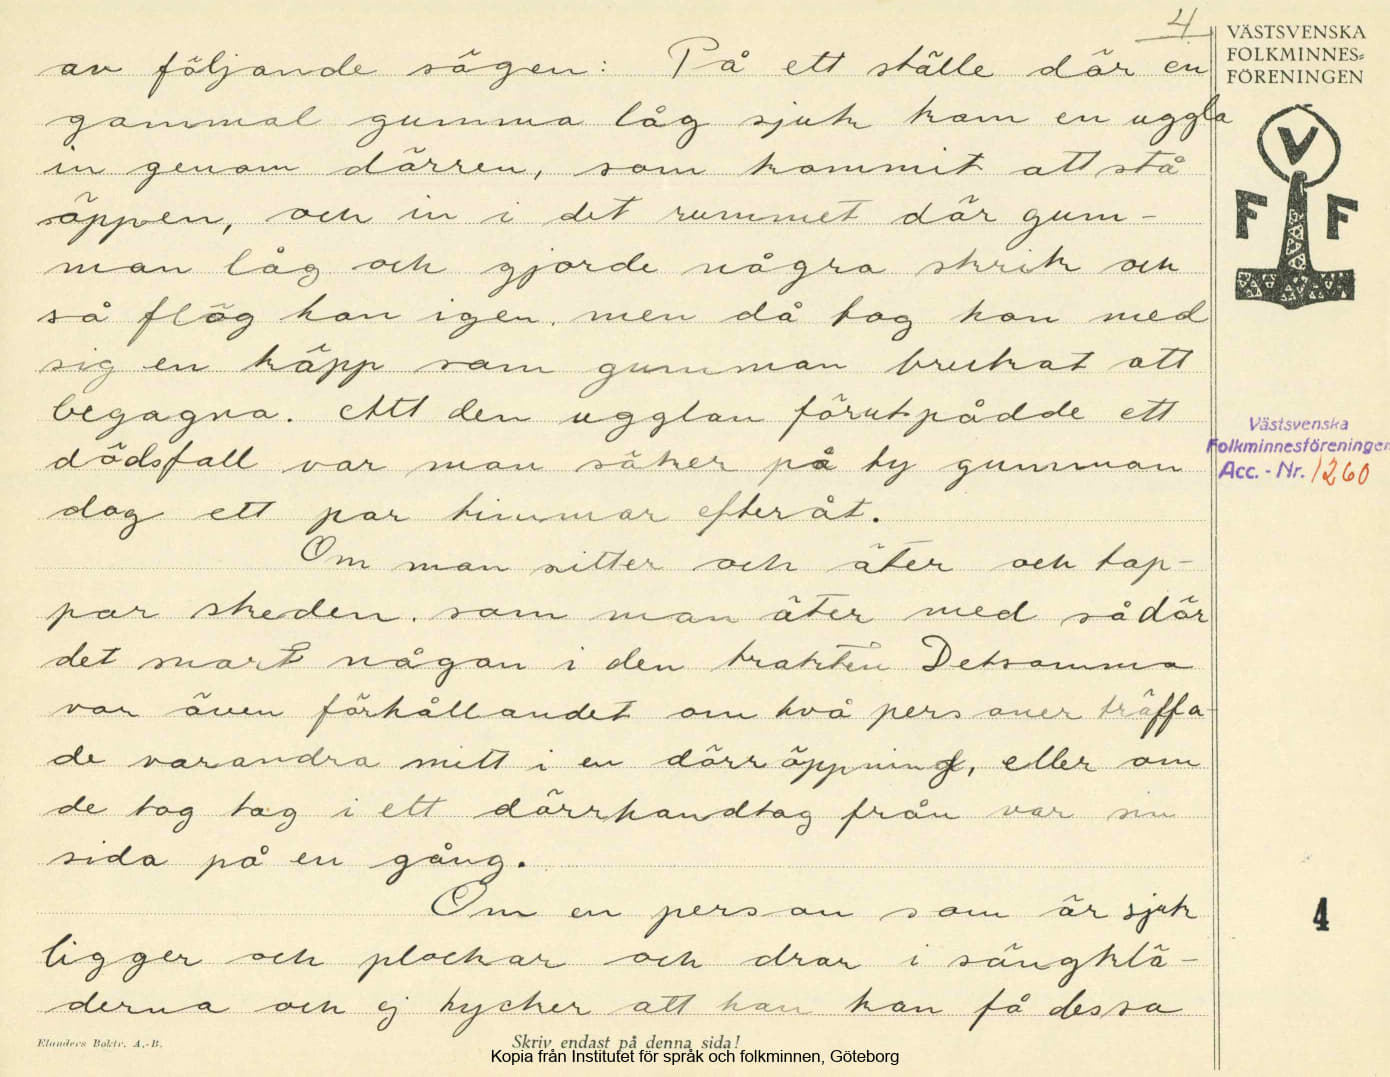 4.
VÄSTSVENSKA
FOLKMINNES=
FÖRENINGEN
av följande sägen: På ett ställe där en
gammal gumma låg sjuk kom en uggla
in genom dörren, som kommit att stå
öppen, och in i det rummet där gum-
man låg och gjorde några skrik och
så flög hon igen. men då tog hon med
sig en käpp som gumman brukat att
begagna. Att den ugglan förutspådde ett
dödsfall var man säker på ty gumman
dog ett par timmar efteråt.
Om man sitter och äter och tap-
par skeden. som man äter med så dör
det snart någon i den trakten Detsamma
var även förhållandet om två personer träffa-
de varandra mitt i en dörröppning, eller om
de tog tag i ett dörrhandtag från var sin
sida på en gång.
Om en person som är sjuk
ligger och plockar och drar i sängklä-
derna och ej tycker att han kan få dessa
V
F F
Västsvenska
Folkminnesföreningen
Acc. - Nr. 1260
4
Elanders Boktr. A.-B.
Skriv endast på denna sida!
Kopia från Institutet för språk och folkminnen, Göteborg